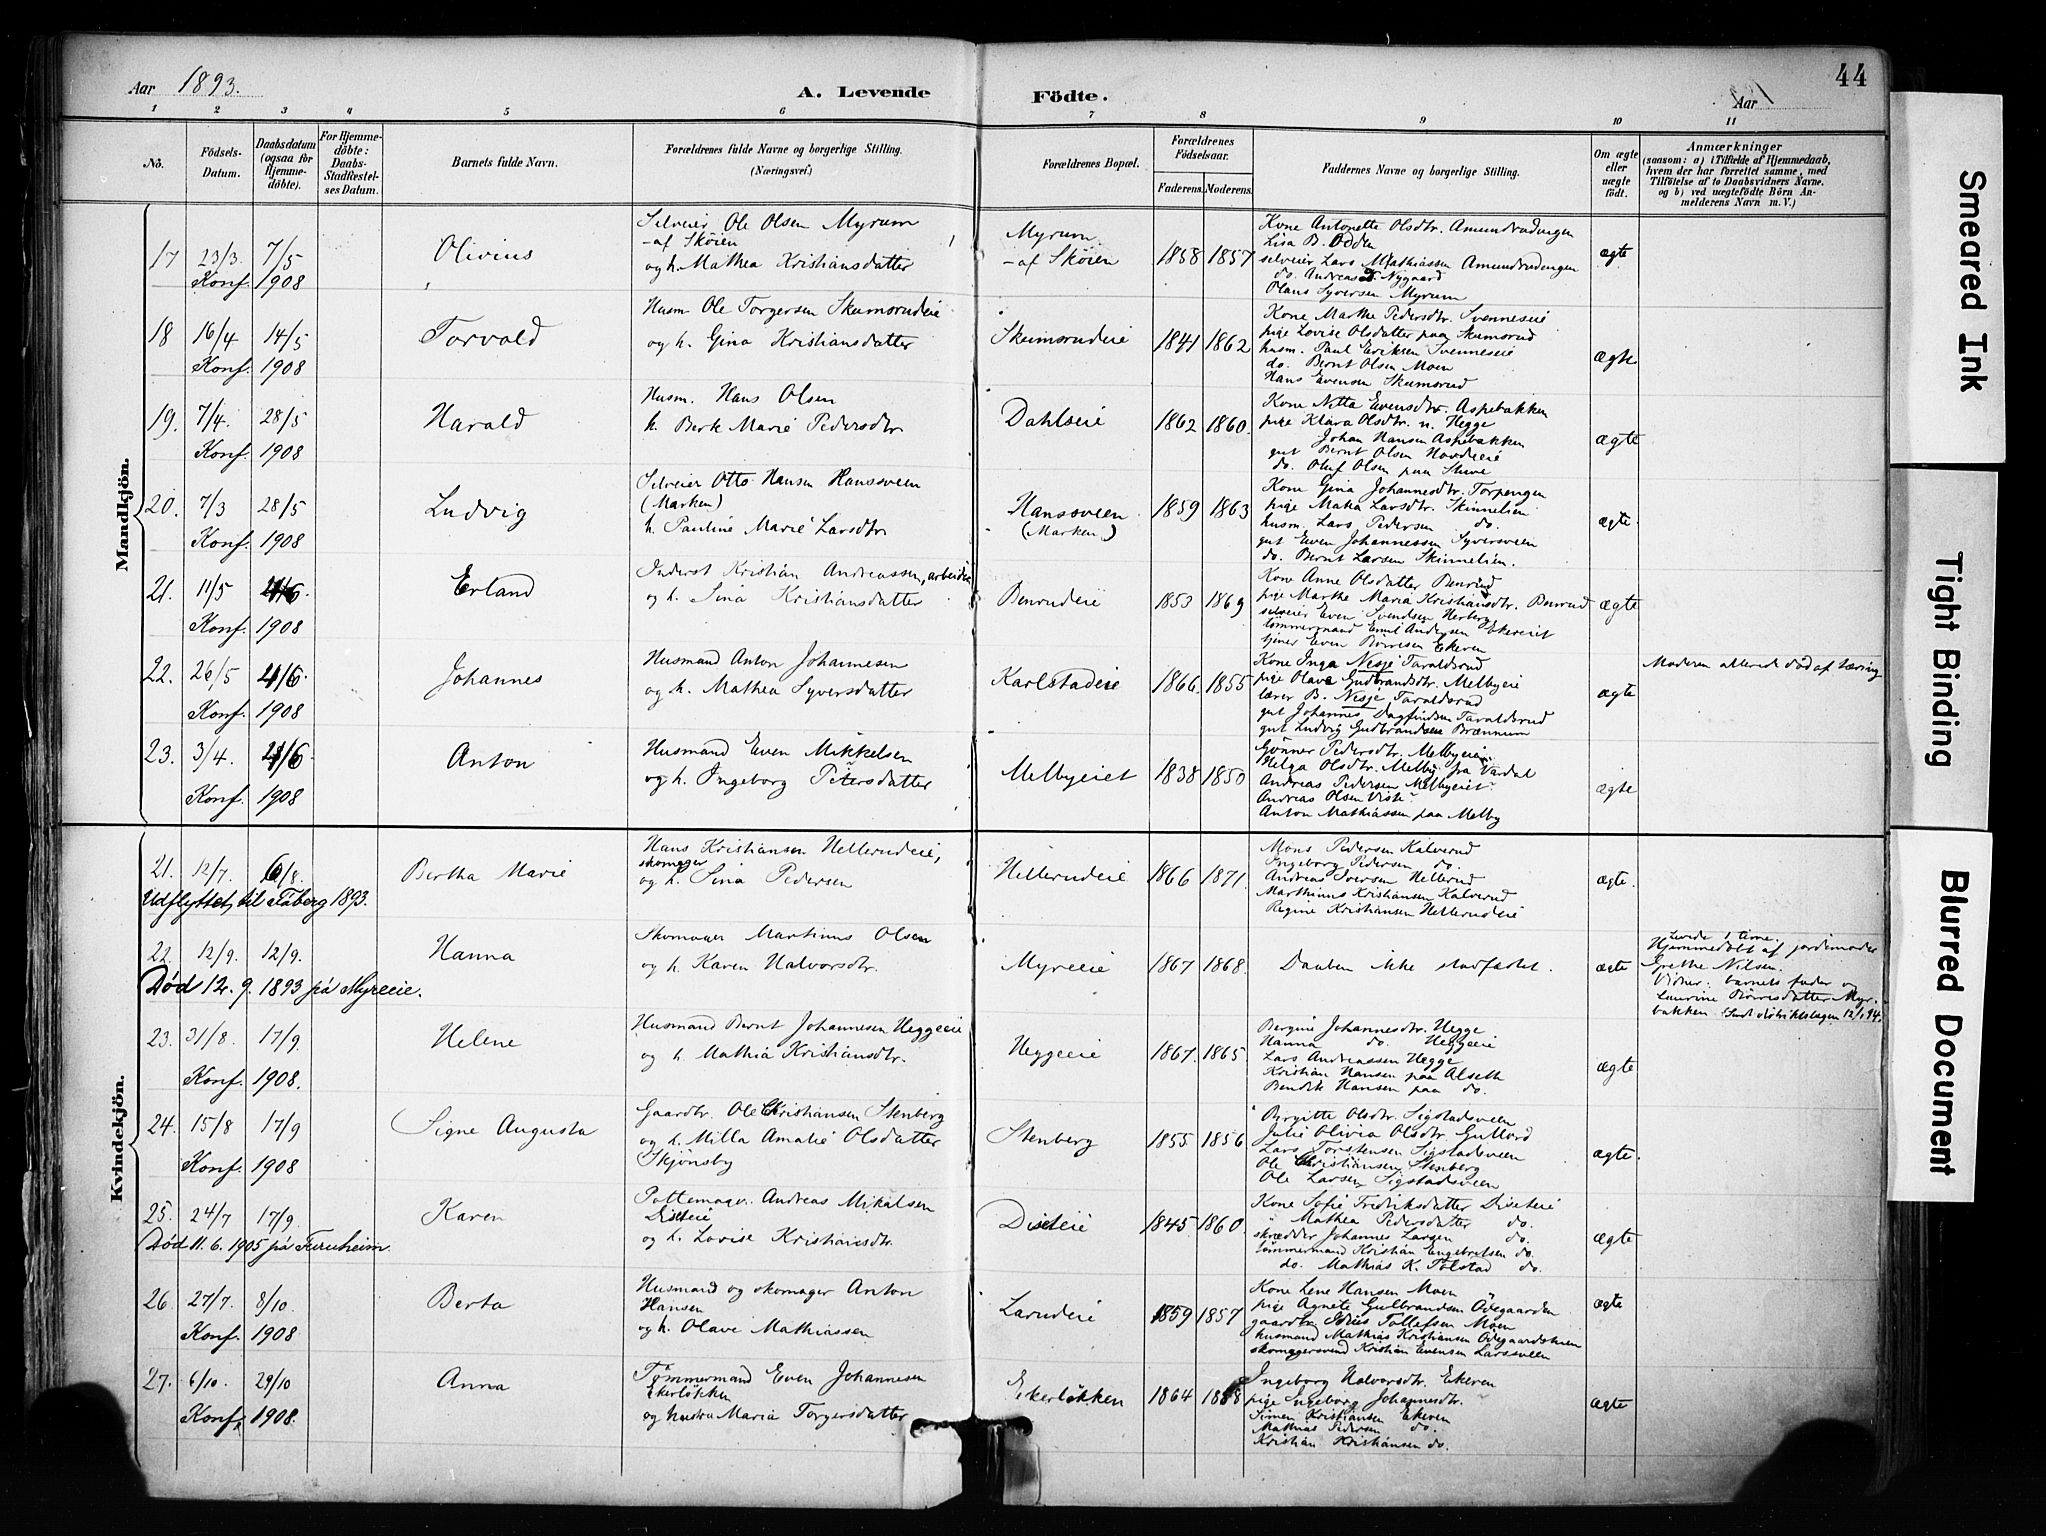 Aar 1893. A. Levende Födte. Aar 44
1 2 3 4 5 6 7 8 9 10 11
No. Födsels-Datum. Daabsdatum (ogsaa for Hjemmedöbte). For Hjemmedöbte: Daabs-Stadfæstelses Datum. Barnets fulde Navn. Forældrenes fulde Navne og borgerlige Stilling. (Næringsvei.) Forældrenes Bopæl. Forældrenes Födselsaar. Faderens. Moderens. Faddernes Navne og borgerlige Stilling. Om ægte eller uægte födt. Anmærkninger (saasom: a) i Tilfælde af Hjemmedaab, hvem der har forrettet samme, med Tilföielse af to Daabsvidners Navne, og b) ved uægtefödte Börn Anmelderens Navn m. V.)
Mandkjön.
17 23/3. 7/5 Olivius
Konf. 1908
Selveier Ole Olsen Myrum
af Skøien
og h. Mathea Kristiansdatter
Myrum
af Skøien
1858 1857
Kone Antonette Olsdtr. Amundrudengen
Lisa B. Odden
selveier Lars Mathiassen Amundrudengen
do. Andreas Nygaard
Olaus Syversen Myrum
ægte
18 16/4 14/5 Torvald
Konf. 1908
Husm. Ole Torgersen Skumsrudeie
og h. Gina Kristiansdatter
Skumsrudeie
1841 1862
Kone Marthe Pedersdtr. Svenneseie
pige Lovise Olsdatter paa Skumsrud
husm. Paul Eriksen Svenneseie
do. Bernt Olsen Moen
Hans Evensen Skumsrud
ægte
19. 7/4. 28/5 Harald
Konf. 1908
Husm. Hans Olsen
h. Berte Marie Pedersdtr
Dahlseie
1862 1860.
Kone Netta Evensdtr. Aspebakken
pige Klara Olsdtr. n. Hegge
Johan Hansen Aspebakken
gut Bernt Olsen Hovdeeie
do. Oluf Olsen paa Stuve
ægte
20. 7/3 28/5 Ludvig
Konf. 1908
Selveier Otto Hansen Hanssveen
(Marken)
h. Pauline Marie Larsdtr
Hanssveen
(Marken)
1859 1863
Kone Gina Johannesdtr. Torpengen
pige Mathea Larsdtr. Skinnelien
husm. Lars Pedersen do.
gut Even Johannessen Syversveen
do. Bernt Larsen Skinnelien.
ægte.
21. 11/5 4/6. Erland
Konf. 1908
Inderst Kristian Andreassen, arbeider
og h. Sina Kristiansdatter
Benrudeie
1853 1869
Kone Anne Olsdatter Benrud
pige Marthe Maria Kristiansdtr. Benrud
selveier Even Svendsen Herberg
tømmermand Emil Andersen Ekereiet
tjener Even Børresen Ekeren
ægte
22. 26/5 4/6. Johannes
Konf. 1908
Husmand Anton Johannesen
og h. Mathea Syversdatter
Karlstadeie
1866. 1855
Kone Inga Nesje Taraldsrud
pige Olave Gudbrandsdtr. Melbyeie
lærer B. Nesje Taraldsrud
gut Johannes Dagfindsen Taraldsrud
gut Ludvig Gudbrandsen Brænnum
ægte
Moderen allerede død af tæring
23. 3/4. 4/6 Anton
Konf. 1908
Husmand Even Mikkelsen
og h. Ingeborg Petersdatter
Melbyeiet
1838 1850
Gønner Pedersdtr. Melbyeie
Helga Olsdtr. Melby fra Vardal
Andreas Pedersen Melbyeiet
Andreas Olsen Viste
Anton Mathiassen paa Melby
ægte
Kvindekjön.
21. 12/7. 6/8. Bertha Marie
Udflyttet til Faaberg 1893.
Hans Kristiansen Hellerudeie,
skomager
og h. Sina Pedersen
Hellerudeie
1866 1871.
Mons Pedersen Kalverud
Ingeborg Pedersen do.
Andreas Iversen Hellerud
Marthinus Kristiansen Kalverud
Regine Kristiansen Hellerudeie
ægte.
22. 12/9. 12/9. Hanna
Død 12. 9. 1893 på Myreeie.
Skomager Martinus Olsen
og h. Karen Halvorsdtr.
Myreeie
1867 1868.
Daaben ikke stadfæstet.
ægte
Levede 1 time.
Hjemmedøbt af jordemoder
Grethe Nilsen.
Vidner: barnets fader og
Laurine Børresdatter Myr-
bakken 12/1 94.
23. 31/8. 17/9. Helene
Konf. 1908.
Husmand Bernt Johannesen Heggeeie
og h. Mathia Kristiansdtr.
Heggeeie
1867. 1865.
Bergine Johannesdtr. Hegge
Hanna do. Heggeeie
Lars Andreassen Hegge
Kristian Hansen paa Alseth
Bendik Hansen paa do.
ægte
24. 15/8 17/9 Signe Augusta
Konf. 1908
Gaardbr. Ole Christiansen Stenberg
og h. Milla Amalie Olsdatter
Skjønsby
Stenberg
1855 1856
Birgitte Olsdtr. Sigstadsveen
Julie Olivia Olsdtr. Gullord
Lars Torstensen Sigstadsveen
Ole Christiansen Stenberg
Ole Larsen Sigstadsveen
ægte.
25. 24/7 17/9. Karen
Død 11. 6. 1905 på Furuheim.
Pottemager. Andreas Mikalsen
Diseteie
og h. Lovise Kristiansdtr.
Diseteie
1845 1860.
Kone Sofie Fredriksdatter Diseteie
" Mathea Pedersdatter do.
skrædder Johannes Larsen do.
tømmermand Kristian Engebretsen do.
do. Mathias K. Tolstad do.
ægte
26. 27/7. 8/10. Berta
Konf. 1908
Husmand og skomager Anton
Hansen
og h. Olave Mathiassen
Larudeie
1859 1857
Kone Lene Hansen Moen
pige Agnete Gulbrandsen Ødegaarden
gaardbr. Tollefsen Moen
husmand Mathias Kristiansen Ødegaardstuen
skomagersvend Kristian Evensen Larssveen
ægte
27. 6/10. 29/10 Anna
Konf. 1908.
Tømmermand Even Johannesen
Ekerløkken
og hustru Maria Torgersdatter
Ekerløkken
1864 1868
Ingeborg Halvorsdtr. Ekeren
pige Ingeborg Johannesdtr.
Simen Kristiansen Ekeren
Mathias Pedersen do.
Kristian Kristiansen do.
ægte
Smeared Ink
Tight Binding
Blurred Document